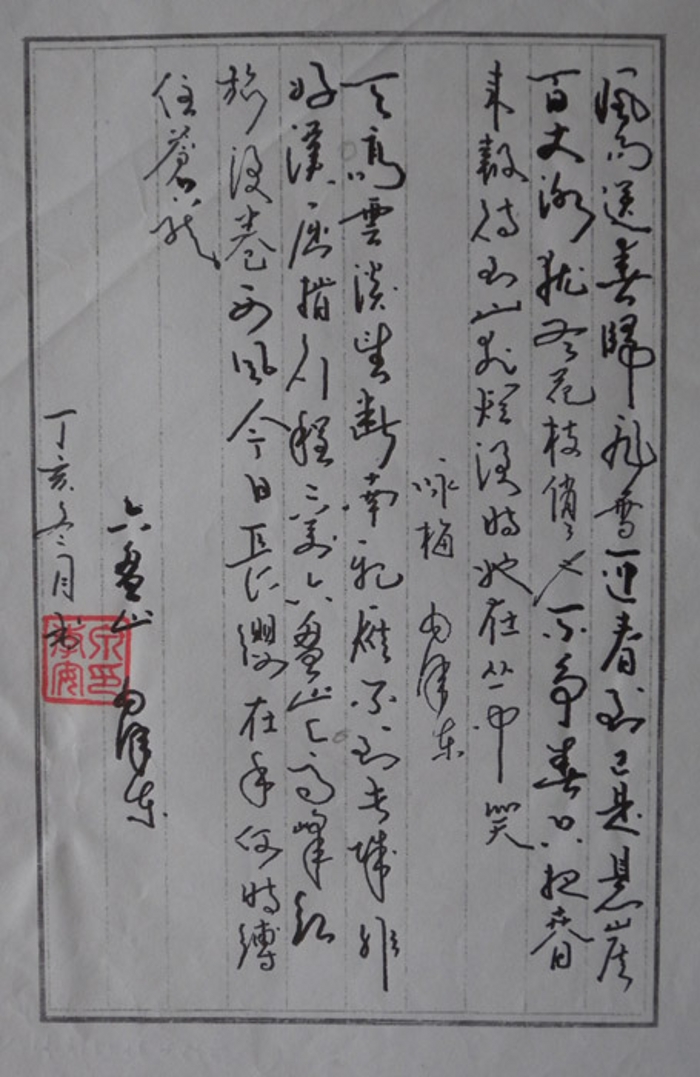 風雨送春歸飛雪迎春到已是懸崖
百丈冰猶有花枝俏〻也不爭春只把春
来報待到山花爛漫時她在丛中笑
咏梅 毛澤东
天高雲淡望断南飛雁不到長城非
好漢屈指行程二萬六盤山上高峰红
旗漫卷西風今日長纓在手何時縛
住蒼龍
六盤山 毛澤东
丁亥冬月